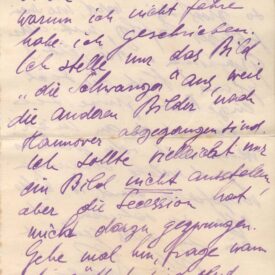 warum ich nicht fahre
habe ich geschrieben.
Ich stelle nur das Bild
„die Schwanger" aus, weil
die anderen Bilder nach
Hannover abgegangen sind.
Ich sollte vielleicht nur
ein Bild nicht ausstellen,
aber die Secession hat
mich dazu gezwungen.
Gehe mal hin, frage wann